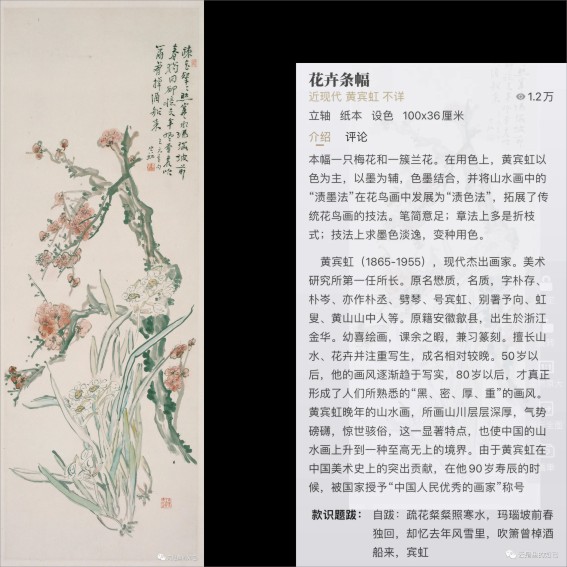 疎花粲粲照寒水瑪瑙坡前
春獨回却憶去年風雪裏吹
簫曾棹酒船來
賓虹
花卉条幅
近现代 黄宾虹 不详
1.2万
立轴 纸本 设色 100x36厘米
介绍 评论
本幅一只梅花和一簇兰花。在用色上，黄宾虹以
色为主，以墨为辅，色墨结合，并将山水画中的
“渍墨法”在花鸟画中发展为“渍色法”，拓展了传
统花鸟画的技法。笔简意足；章法上多是折枝
式；技法上求墨色淡逸，变种用色。
黄宾虹（1865-1955），现代杰出画家。美术
研究所第一任所长。原名懋质，名质，字朴存、
朴岑、亦作朴丞、劈琴、号宾虹、别署予向、虹
叟、黄山山中人等。原籍安徽歙县，出生於浙江
金华。幼喜绘画，课余之暇，兼习篆刻。擅长山
水、花卉并注重写生，成名相对较晚。50岁以
后，他的画风逐渐趋于写实，80岁以后，才真正
形成了人们所熟悉的“黑、密、厚、重”的画风。
黄宾虹晚年的山水画，所画山川层层深厚，气势
磅礴，惊世骇俗，这一显著特点，也使中国的山
水画上升到一种至高无上的境界。由于黄宾虹在
中国美术史上的突出贡献，在他90岁寿辰的时
候，被国家授予“中国人民优秀的画家”称号
款识题跋： 自跋：疏花粲粲照寒水，玛瑙坡前春
独回，却忆去年风雪里，吹箫曾棹酒
船来，宾虹